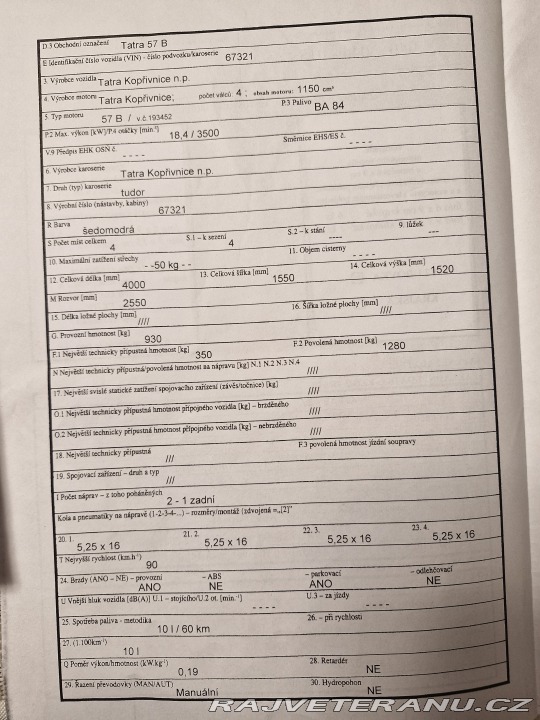 D.3 Obchodní označení Tatra 57 B
E Identifikační číslo vozidla (VIN) - číslo podvozku/karoserie 67321
3. Výrobce vozidla Tatra Kopřivnice n.p.
4. Výrobce motoru Tatra Kopřivnice; počet válců: 4 ; obsah motoru: 1150 cm³
5. Typ motoru 57 B / v.č 193452 P.3 Palivo BA 84
P.2 Max. výkon [kW]/P.4 otáčky [min⁻¹] 18,4 / 3500
V.9 Předpis EHK OSN č. - - - - Směrnice EHS/ES č. - - - -
6. Výrobce karoserie Tatra Kopřivnice n.p.
7. Druh (typ) karoserie tudor
8. Výrobní číslo (nástavby, kabiny) 67321
R Barva šedomodrá
S Počet míst celkem 4 S.1 – k sezení 4 S.2 – k stání ---- 9. lůžek ---
10. Maximální zatížení střechy - -50 kg - - 11. Objem cisterny - - - -
12. Celková délka [mm] 4000 13. Celková šířka [mm] 1550 14. Celková výška [mm] 1520
M Rozvor [mm] 2550
15. Délka ložné plochy [mm] //// 16. Šířka ložné plochy [mm] ////
G. Provozní hmotnost [kg] 930
F.1 Největší technicky přípustná hmotnost [kg] 350 F.2 Povolená hmotnost [kg] 1280
N Největší technicky přípustná/povolená hmotnost na nápravu [kg] N.1 N.2 N.3 N.4 ////
17. Největší svislé statické zatížení spojovacího zařízení (závěs/točnice) [kg] ////
O.1 Největší technicky přípustná hmotnost přípojného vozidla [kg] – brzděného ////
O.2 Největší technicky přípustná hmotnost přípojného vozidla [kg] – nebrzděného ////
18. Největší technicky přípustná /// F.3 povolená hmotnost jízdní soupravy
19. Spojovací zařízení – druh a typ ///
l Počet náprav – z toho poháněných 2 - 1 zadní
Kola a pneumatiky na nápravě (1-2-3-4-...) – rozměry/montáž (zdvojená =„[2]"
20. 1. 5,25 x 16 21. 2. 5,25 x 16 22. 3. 5,25 x 16 23. 4. 5,25 x 16
T Nejvyšší rychlost (km.h⁻¹) 90
24. Brzdy (ANO – NE) – provozní ANO – ABS NE – parkovací ANO – odlehčovací NE
U Vnější hluk vozidla [dB(A)] U.1 – stojícího/U.2 ot. [min.⁻¹] - - - - U.3 – za jízdy - - - -
25. Spotřeba paliva - metodika 10 l / 60 km 26. – při rychlosti
27. (l.100km⁻¹) 10 l
Q Poměr výkon/hmotnost (kW.kg⁻¹) 0,19 28. Retardér NE
29. Řazení převodovky (MAN/AUT) Manuální 30. Hydropohon NE
RAJVETERANU.CZ